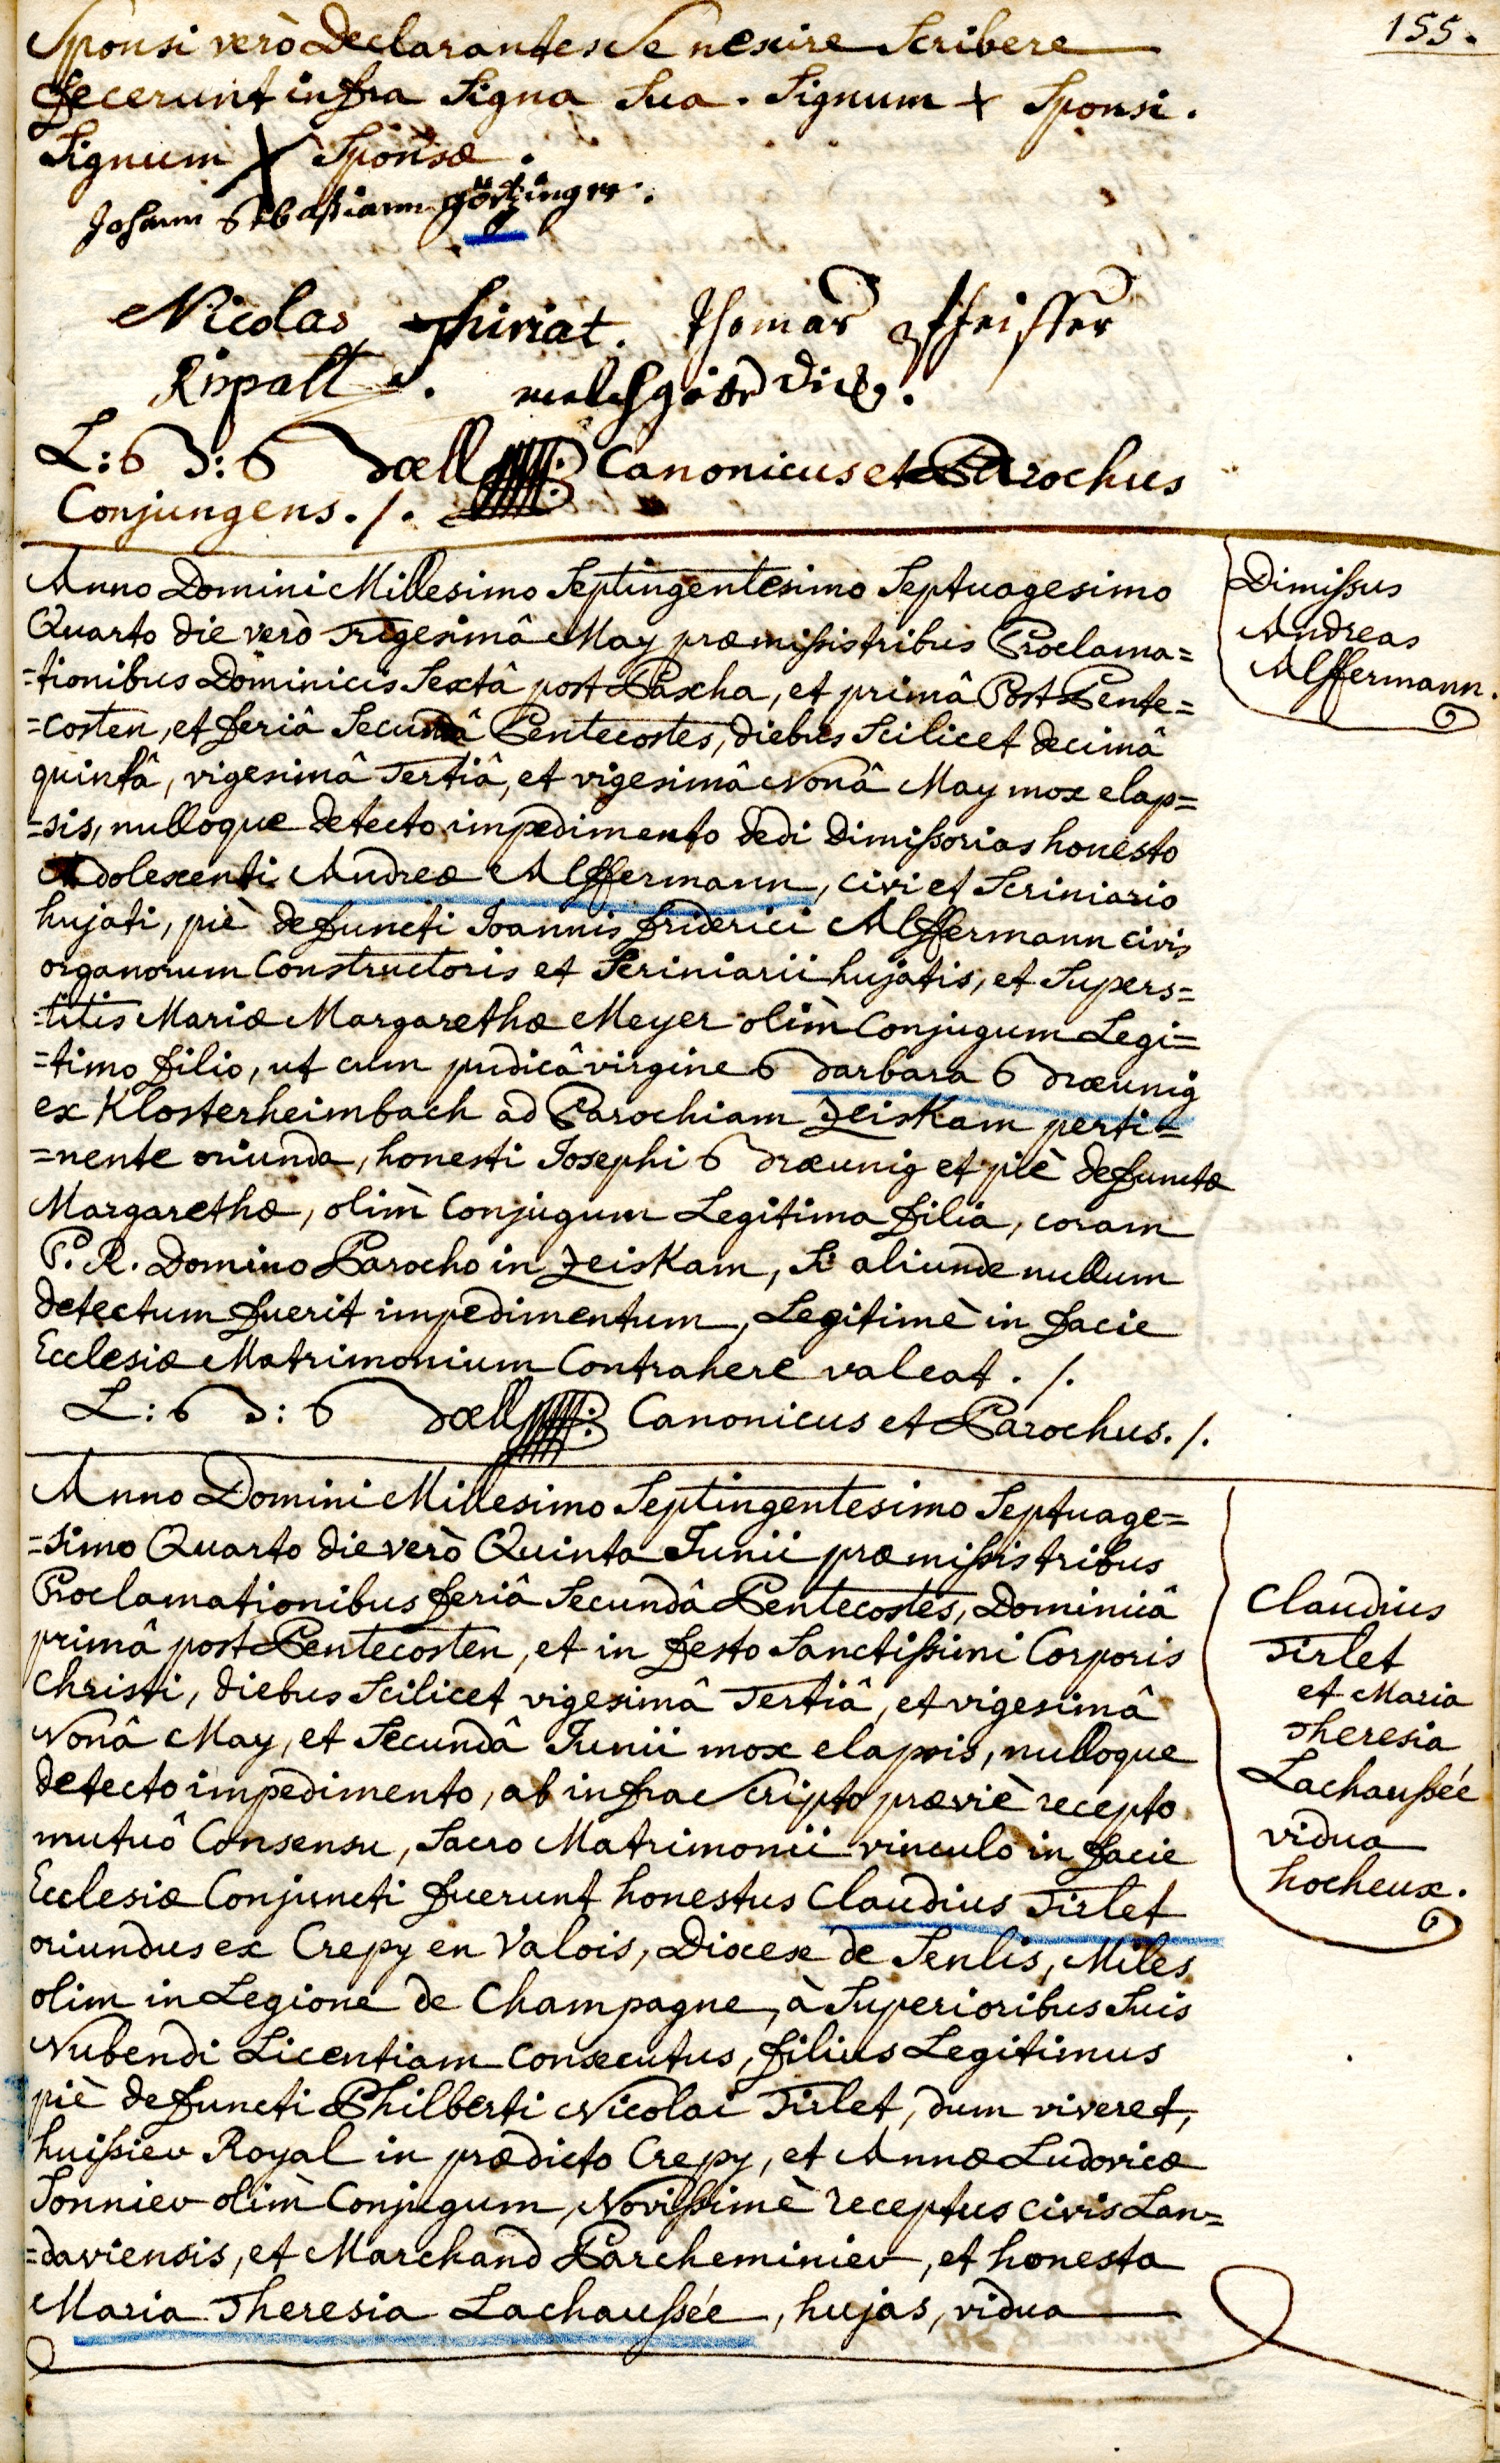 155.
Sponsi verò Declarantes Se nescire Scribere
fecerunt infra Signa Sua. Signum + Sponsi.
Signum X Sponsæ.
Johann Sebastiann Görtzinger.
Nicolas thiriat. Thomas Pfeiffer
Rispalt.
L: B: B Bœll Canonicus et Parochus
Conjungens./.
Anno Domini Millesimo Septingentesimo Septuagesimo
Quarto die verò Trigesimâ May præmißis tribus Proclama=
=tionibus Dominicis Sextâ post Pascha, et primâ Post Pente=
=costen, et feriâ Secundâ Pentecostes, diebus Scilicet decimâ
quintâ, vigesimâ Tertiâ, et vigesimâ Nonâ May mox elap=
=sis, nulloque detecto impedimento dedi Dimißorias honesto
Adolescenti Andreæ Alffermann, civi et Scriniario
hujati, piè defuncti Joannis friderici Alffermann civis
organorum Constructoris et Scriniarii hujatis, et Supers=
=titis Mariæ Margarethæ Meyer olim Conjugum Legi=
=timo filio, ut cum pudicâ virgine Barbara Bræunig
ex Klosterheimbach ad Parochiam Zeiskam perti=
=nente oriunda, honesti Josephi Bræunig et piè defunctæ
Margarethæ, olim Conjugum Legitima filia, coram
P. R. Domino Parocho in Zeiskam, Si aliunde nullum
detectum fuerit impedimentum, Legitimè in facie
Ecclesiæ Matrimonium Contrahere valeat./.
L: B: B Bœll Canonicus et Parochus./.
Dimißus
Andreas
Alffermann.
Anno Domini Millesimo Septingentesimo Septuage=
=simo Quarto die verò Quinta Junii præmißis tribus
Proclamationibus feriâ Secundâ Pentecostes, Dominicâ
primâ post Pentecosten, et in festo Sanctißimi Corporis
Christi, diebus Scilicet vigesimâ Tertiâ, et vigesimâ
Nonâ May, et Secundâ Junii mox elapsis, nulloque
detecto impedimento, ab infrascripto præviè recepto
mutuô Consensu, Sacro Matrimonii vinculo in facie
Ecclesiæ Conjuncti fuerunt honestus Claudius Tirlet
oriundus ex Crepy en Valois, Diocese de Senlis, Miles
olim in Legione de Champagne, à Superioribus Suis
Nubendi Licentiam Consecutus, filius Legitimus
piè defuncti Philberti Nicolai Tirlet, dum viveret,
huißier Royal in prædicto Crepy, et Annæ Ludovicæ
Sonnier olim Conjugum, Novißimè receptus civis Lan=
=daviensis, et Marchand Parcheminier, et honesta
Maria Theresia Lachaußée, hujas, vidua
Claudius
Tirlet
et Maria
Theresia
Lachaußée
vidua
hocheux.